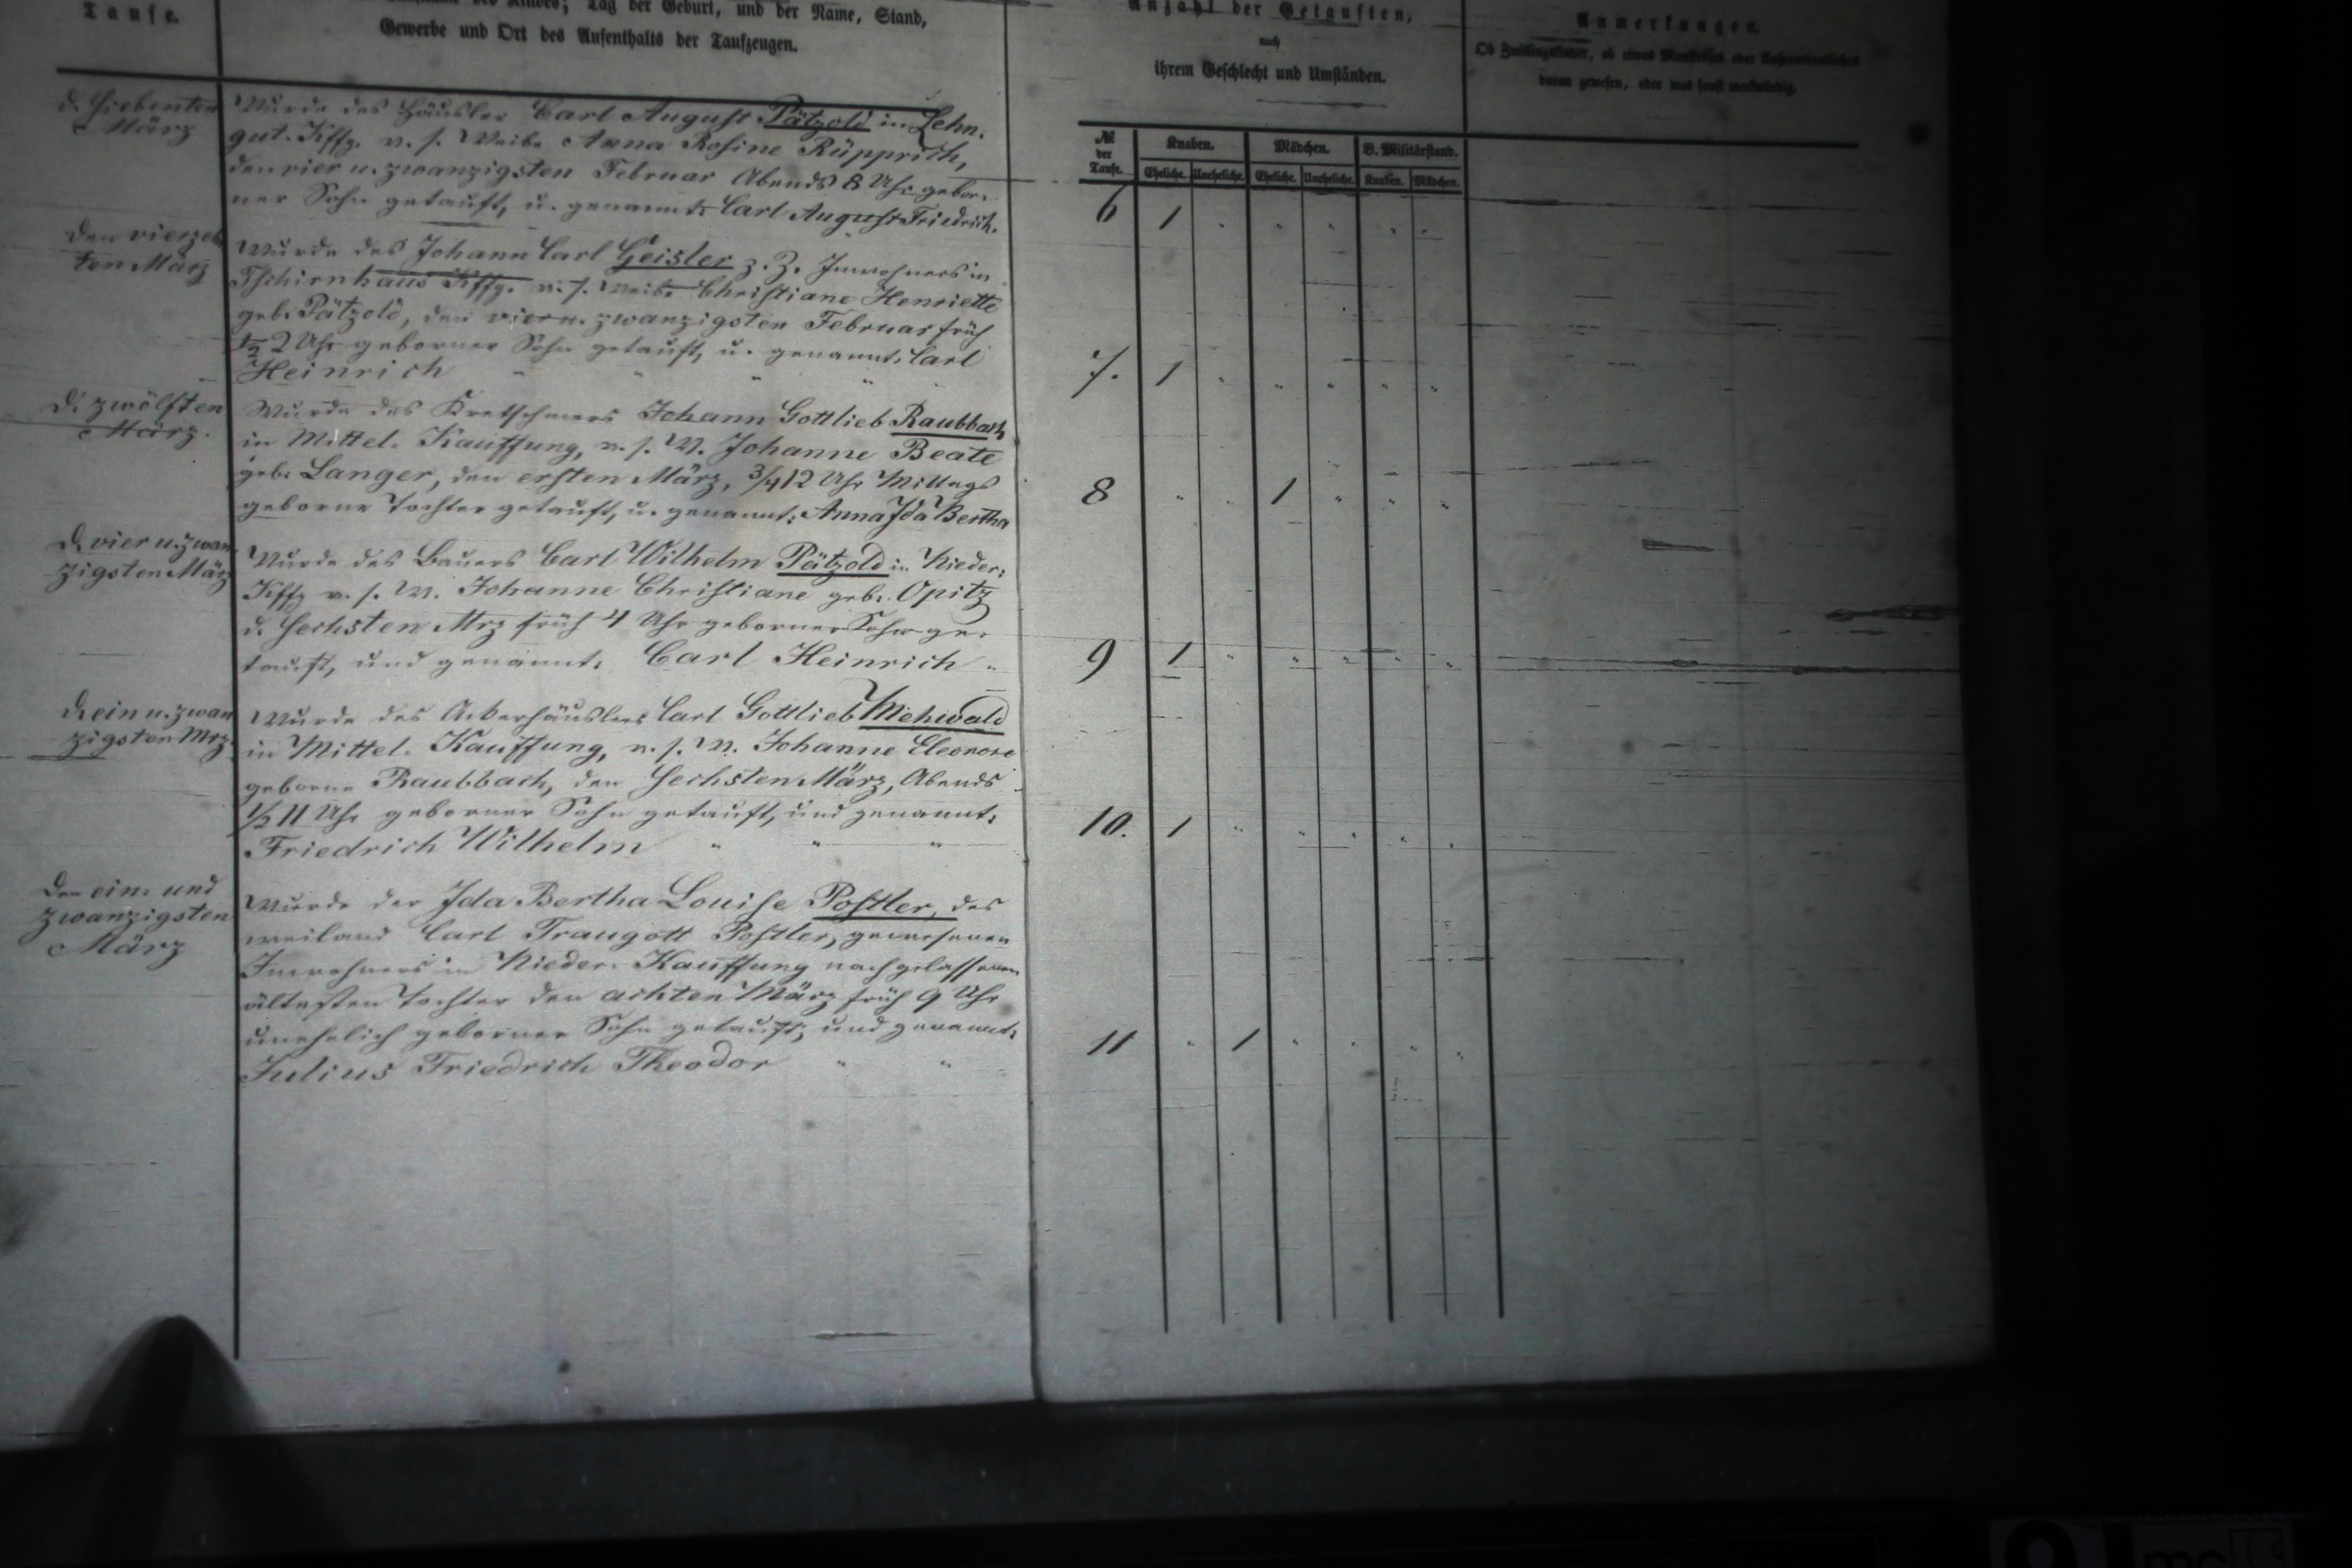 Taufe.
des Kindes; Tag der Geburt, und der Name, Stand,
Gewerbe und Ort des Aufenthalts der Taufzeugen.
Anzahl der Getauften,
nach
ihrem Geschlecht und Umständen.
Anmerkungen.
Ob Zwillingskinder, ob etwas Monströses oder Außerordentliches
daran gewesen, oder was sonst merkwürdig.
№ der Taufe.
Knaben. Mädchen. B. Militärstand.
Eheliche. Uneheliche. Eheliche. Uneheliche. Knaben. Mädchen.
d. siebenten
März
Wurde des Häusler Carl August Pätzold in Lehn-
gut-Kffg. u. s. Weibe Anna Rosine Rüpprich,
den vier u. zwanzigsten Februar Abends 8 Uhr gebor-
ner Sohn getauft, u. genannt: Carl August Friedrich.
6 1 " " " " "
den vierzehn
ten März
Wurde des Johann Carl Geisler z. Z. Inwohners in
Tschirnhaus Kffg. u. s. Weibe Christiane Henriette
geb. Pätzold, den vier u. zwanzigsten Februar früh
½ 2 Uhr geborner Sohn getauft, u. genannt: Carl
Heinrich " " " " "
7. 1 " " " " "
d. zwölften
März.
Wurde des Kretschmers Johann Gottlieb Raubbach
in Mittel-Kauffung, u. s. W. Johanne Beate
geb. Langer, den ersten März, ¾ 12 Uhr Mittags
geborne Tochter getauft, u. genannt: Anna Ida Bertha
8 " " 1 " " "
d. vier u. zwan
zigsten März
Wurde des Bauers Carl Wilhelm Pätzold in Nieder-
Kffg u. s. W. Johanne Christiane geb. Opitz
d. sechsten Mrz früh 4 Uhr geborner Sohn ge-
tauft, und genannt: Carl Heinrich "
9 1 " " " " "
d. ein u. zwan
zigsten Mrz.
Wurde des Ackerhäuslers Carl Gottlieb Mehwald
in Mittel-Kauffung, u. s. W. Johanne Eleonore
geborne Raubbach, den sechsten März, Abends
½ 11 Uhr geborner Sohn getauft, und genannt:
Friedrich Wilhelm " " "
10. 1 " " " " "
Den ein- und
zwanzigsten
März
Wurde der Ida Bertha Louise Postler, des
weiland Carl Traugott Postler, gewesenen
Inwohners in Nieder-Kauffung nachgelassenen
ältesten Tochter den achten März früh 9 Uhr
unehelich geborner Sohn getauft, und genannt:
Julius Friedrich Theodor " "
11 " 1 " " " "